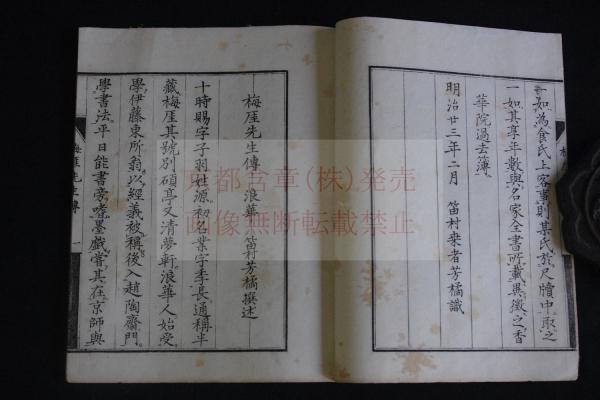 一如為食氏上客事則某氏於尺牘中取之
一如其享年數與名家全書所載異徵之香
華院過去簿
明治廿三年二月 笛村桒者芳橘識
梅厓先生傳 浪華 笛村芳橘撰述
十時賜字子羽姓源初名業字季長通稱半
藏梅厓其號別碩亭又清夢軒浪華人始受
學伊藤東所翁以經義被稱後入趙陶齋門
學書法平日能書旁嗜臺戲嘗其在京師與
梅厓先生傳 一
京都含章(株)発売
画像無断転載禁止